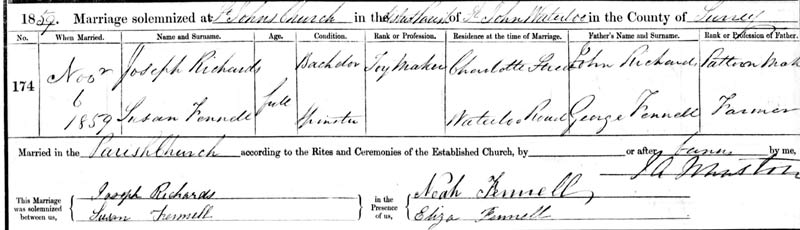 1859. Marriage solemnized at St Johns Church in the District Parish of St John Waterloo in the County of Surrey
No. When Married. Name and Surname. Age. Condition. Rank or Profession. Residence at the time of Marriage. Father's Name and Surname. Rank or Profession of Father.
174 Novr 6 1859 Joseph Richards full Bachelor Toy Maker Charlotte Street John Richards Pattern Mak
Susan Fennell Spinster Waterloo Road George Fennell Farmer
Married in the Parish Church according to the Rites and Ceremonies of the Established Church, by or after Banns by me,
J A Johnston
This Marriage was solemnized between us, Joseph Richards Susan Fennell in the Presence of us, Noah Fennell Eliza Fennell